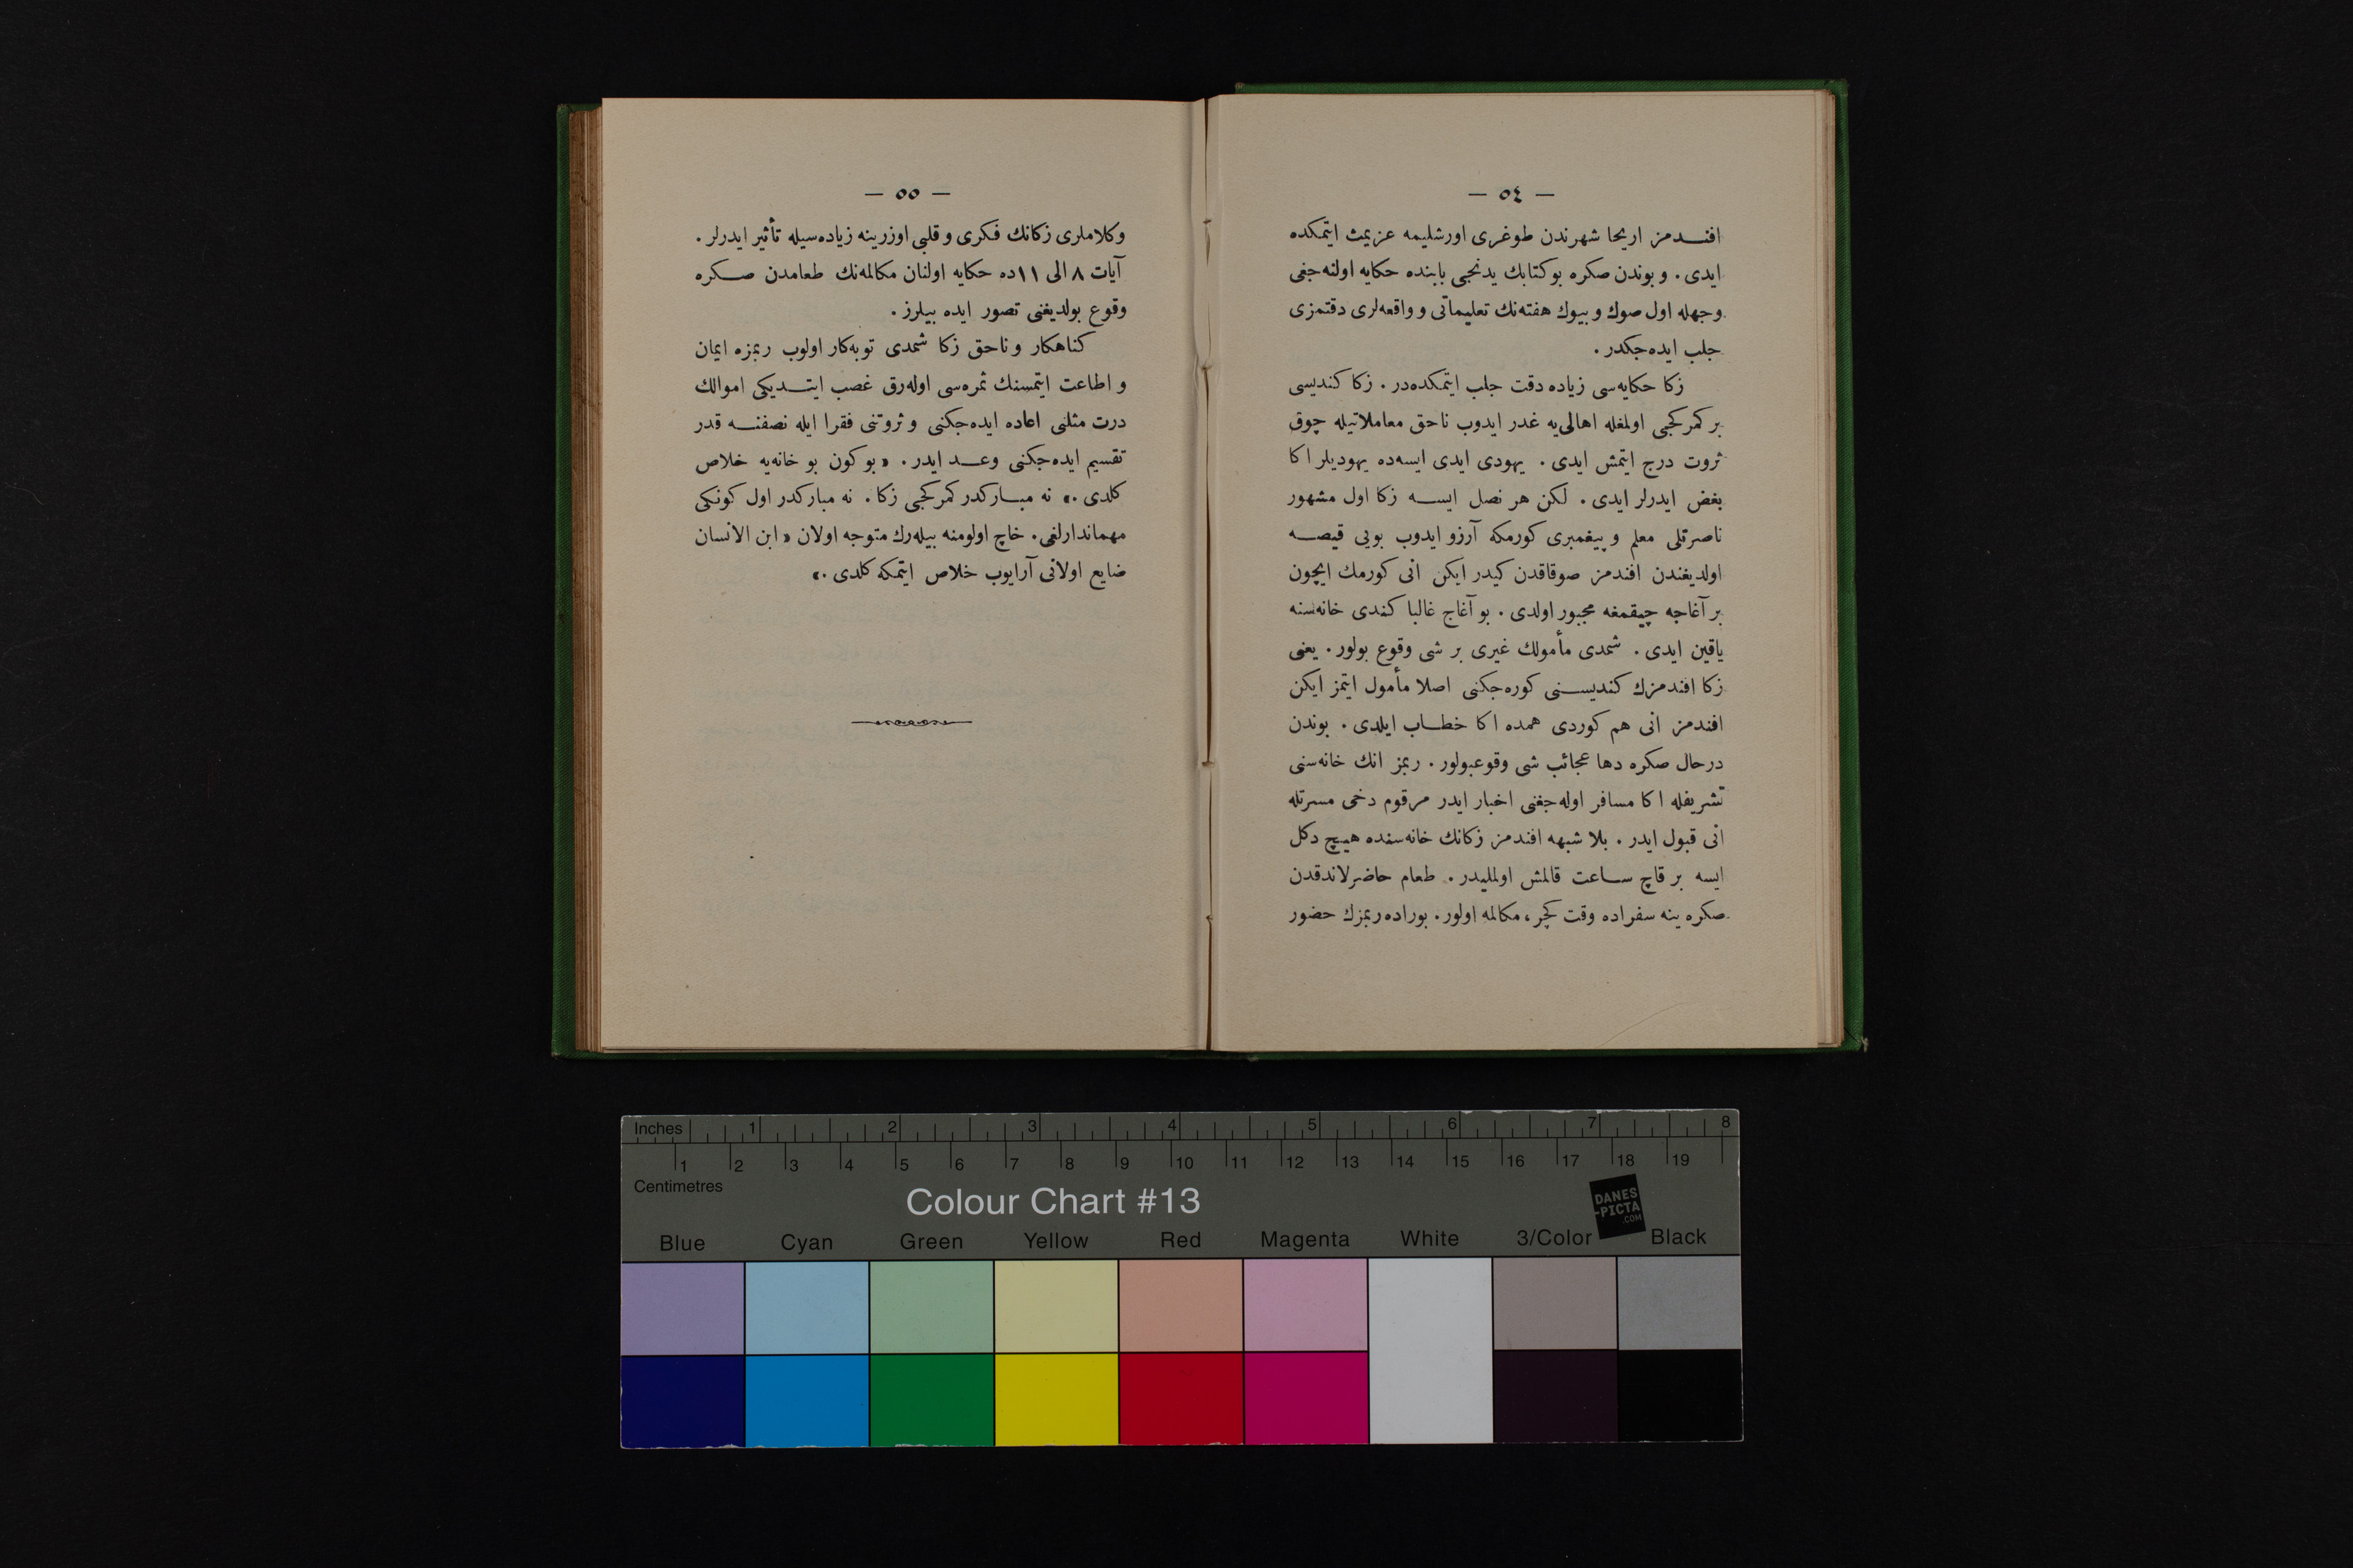 — ٥٤ —
افندمز اریحا شهرندن طوغری اورشلیمه عزیمت ایتمکده
ایدی . و بوندن صکره بو کتابك یدنجی بابنده حکایه اولنه‌جغی
وجهله اول صوك و بیوك هفته‌نك تعلیماتی و واقعه‌لری دقتمزی
جلب ایده‌جکدر .
زکا حکایه‌سی زیاده دقت جلب ایتمکده‌در . زکا کندیسی
بر کمرکجی اولمغله اهالی‌یه غدر ایدوب ناحق معاملاتیله چوق
ثروت درج ایتمش ایدی . یهودی ایدی ایسه‌ده یهودیلر اکا
بغض ایدرلر ایدی . لکن هر نصل ایسه زکا اول مشهور
ناصرتلی معلم و پیغمبری کورمکه آرزو ایدوب بویی قیصه
اولدیغندن افندمز صوقاقدن کیدر ایکن انی کورمك ایچون
بر آغاجه چیقمغه مجبور اولدی . بو آغاج غالبا کندی خانه‌سنه
یاقین ایدی . شمدی مأمولك غیری بر شی وقوع بولور . یعنی
زکا افندمزك کندیسنی کوره‌جکنی اصلا مأمول ایتمز ایکن
افندمز انی هم کوردی همده اکا خطاب ایلدی . بوندن
درحال صکره دها عجائب شی وقوعبولور . ربمز انك خانه‌سنی
تشریفله اکا مسافر اوله‌جغنی اخبار ایدر مرقوم دخی مسرتله
انی قبول ایدر . بلا شبهه افندمز زکانك خانه‌سنده هیچ دکل
ایسه بر قاچ ساعت قالمش اولملیدر . طعام حاضرلاندقدن
صکره ینه سفراده وقت کچر، مکالمه اولور . بوراده ربمزك حضور
— ٥٥ —
وکلاملری زکانك فکری و قلبی اوزرینه زیاده‌سیله تأثیر ایدرلر .
آیات ٨ الی ١١ ده حکایه اولنان مکالمه‌نك طعامدن صکره
وقوع بولدیغنی تصور ایده بیلرز .
کناهکار و ناحق زکا شمدی توبه‌کار اولوب ربمزه ایمان
و اطاعت ایتمسنك ثمره‌سی اوله‌رق غصب ایتدیکی اموالك
درت مثلنی اعاده ایده‌جکنی و ثروتنی فقرا ایله نصفنه قدر
تقسیم ایده‌جکنی وعد ایدر . « بو کون بو خانه‌یه خلاص
کلدی .» نه مبارکدر کمرکجی زکا . نه مبارکدر اول کونکی
مهماندارلغی . خاچ اولومنه بیله‌رك متوجه اولان « ابن الانسان
ضایع اولانی آرایوب خلاص ایتمکه کلدی .»
Inches 1 2 3 4 5 6 7 8
1 2 3 4 5 6 7 8 9 10 11 12 13 14 15 16 17 18 19
Centimetres
Colour Chart #13
DANES
-PICTA
.COM
Blue Cyan Green Yellow Red Magenta White 3/Color Black